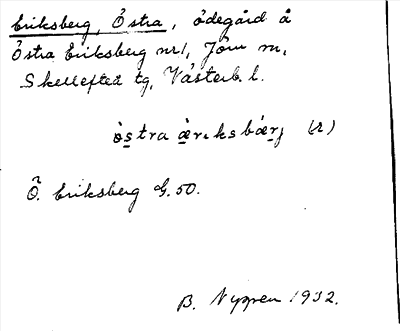 Eriksberg, Östra, ödegård å
Östra Eriksberg nr 1, Jörn sn,
Skellefteå tg, Västerb. l.
östra æ̀riksbærj (2)
Ö. Eriksberg G. 50.
B. Nyggren 1932.